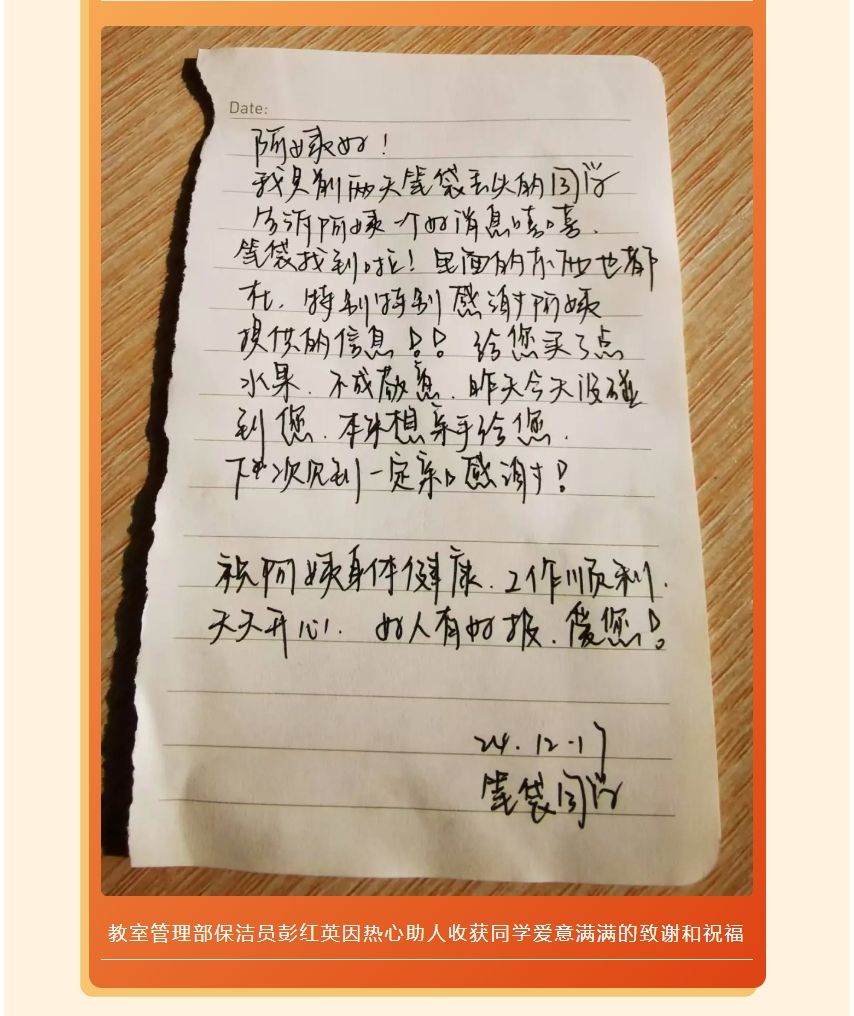 Date:
阿姨好！
我是前两天笔袋丢失的同学
告诉阿姨一个好消息嘻嘻.
笔袋找到啦！里面的东西也都
在. 特别特别感谢阿姨
提供的信息！！给您买了点
水果. 不成敬意. 昨天今天没碰
到您. 本来想亲手给您.
下次见到一定亲口感谢！
祝阿姨身体健康. 工作顺利.
天天开心. 好人有好报. 爱您！
24.12.17
笔袋同学
教室管理部保洁员彭红英因热心助人收获同学爱意满满的致谢和祝福